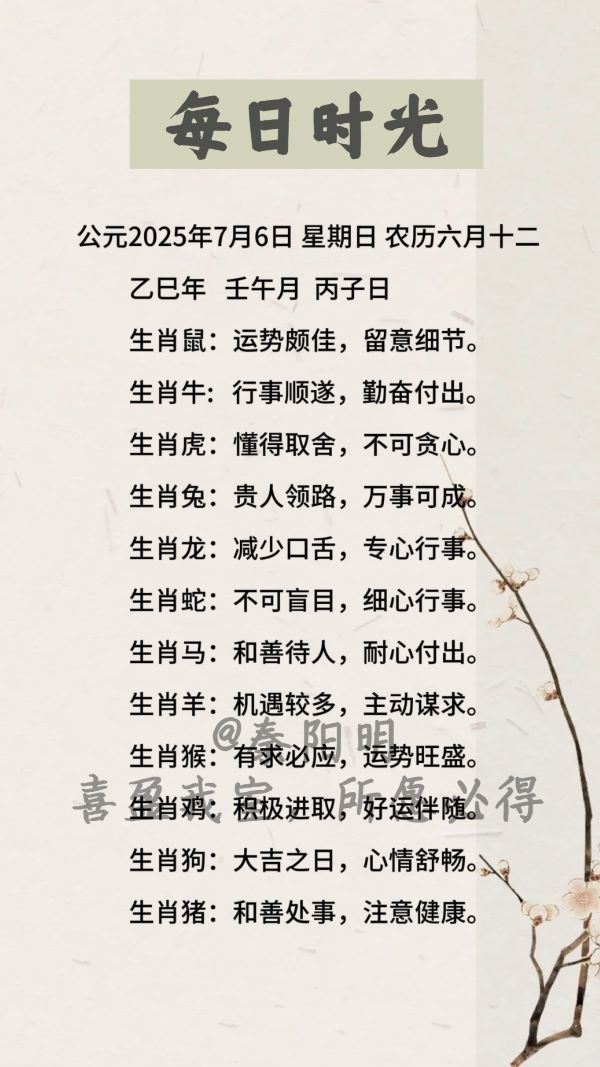 每日时光
公元2025年7月6日 星期日 农历六月十二
乙巳年 壬午月 丙子日
生肖鼠：运势颇佳，留意细节。
生肖牛：行事顺遂，勤奋付出。
生肖虎：懂得取舍，不可贪心。
生肖兔：贵人领路，万事可成。
生肖龙：减少口舌，专心行事。
生肖蛇：不可盲目，细心行事。
生肖马：和善待人，耐心付出。
生肖羊：机遇较多，主动谋求。
@秦阳明
生肖猴：有求必应，运势旺盛。
喜盈我室，所愿必得
生肖鸡：积极进取，好运伴随。
生肖狗：大吉之日，心情舒畅。
生肖猪：和善处事，注意健康。